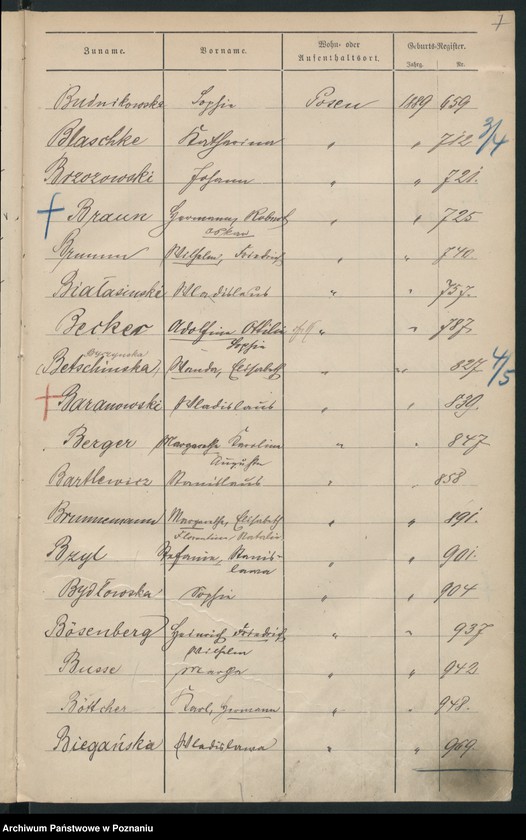 7
Zuname. Vorname. Wohn- oder Aufenthaltsort. Geburts-Register.
Jahrg. Nr.
Budnikowska Sophie Posen 1889 659
Blaschke Katharina " " 712 3/4
Brzozowski Johann " " 721.
Braun Hermann, Robert " " 725
Oskar
Wilhelm, Friedrich " " 740
Białasinski Wladislaus " " 757.
Becker Adolfine Ottilie " " 787.
Sophie
Betschinska Wanda, Elisabeth " " 827 4/5
Baranowski Wladislaus " " 839.
Berger Margarethe Karolina " " 847
Auguste
Bartlewicz Stanislaus " " 858
Brunnemann Margarethe, Elisabeth " " 891.
Florentine Natalie
Bzyl Stefania, Stanis- " " 901.
lawa
Bydłowska Sophie " " 904
Bösenberg Heinrich Friedrich " " 937
Wilhelm
Busse " " 942
Böttcher Karl, Hermann " " 948.
Biegańska Wladislawa " " 969.
Archiwum Państwowe w Poznaniu